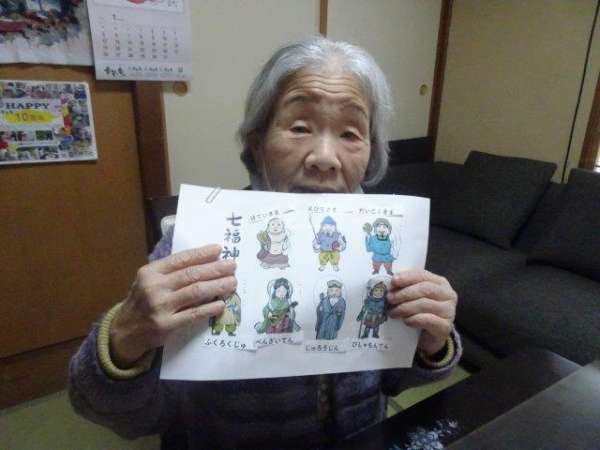 HAPPY
10周年
七福神
ほていさま
えびすさま
だいこくさま
ふくろくじゅ
べんざいてん
じゅろうじん
びしゃもんてん